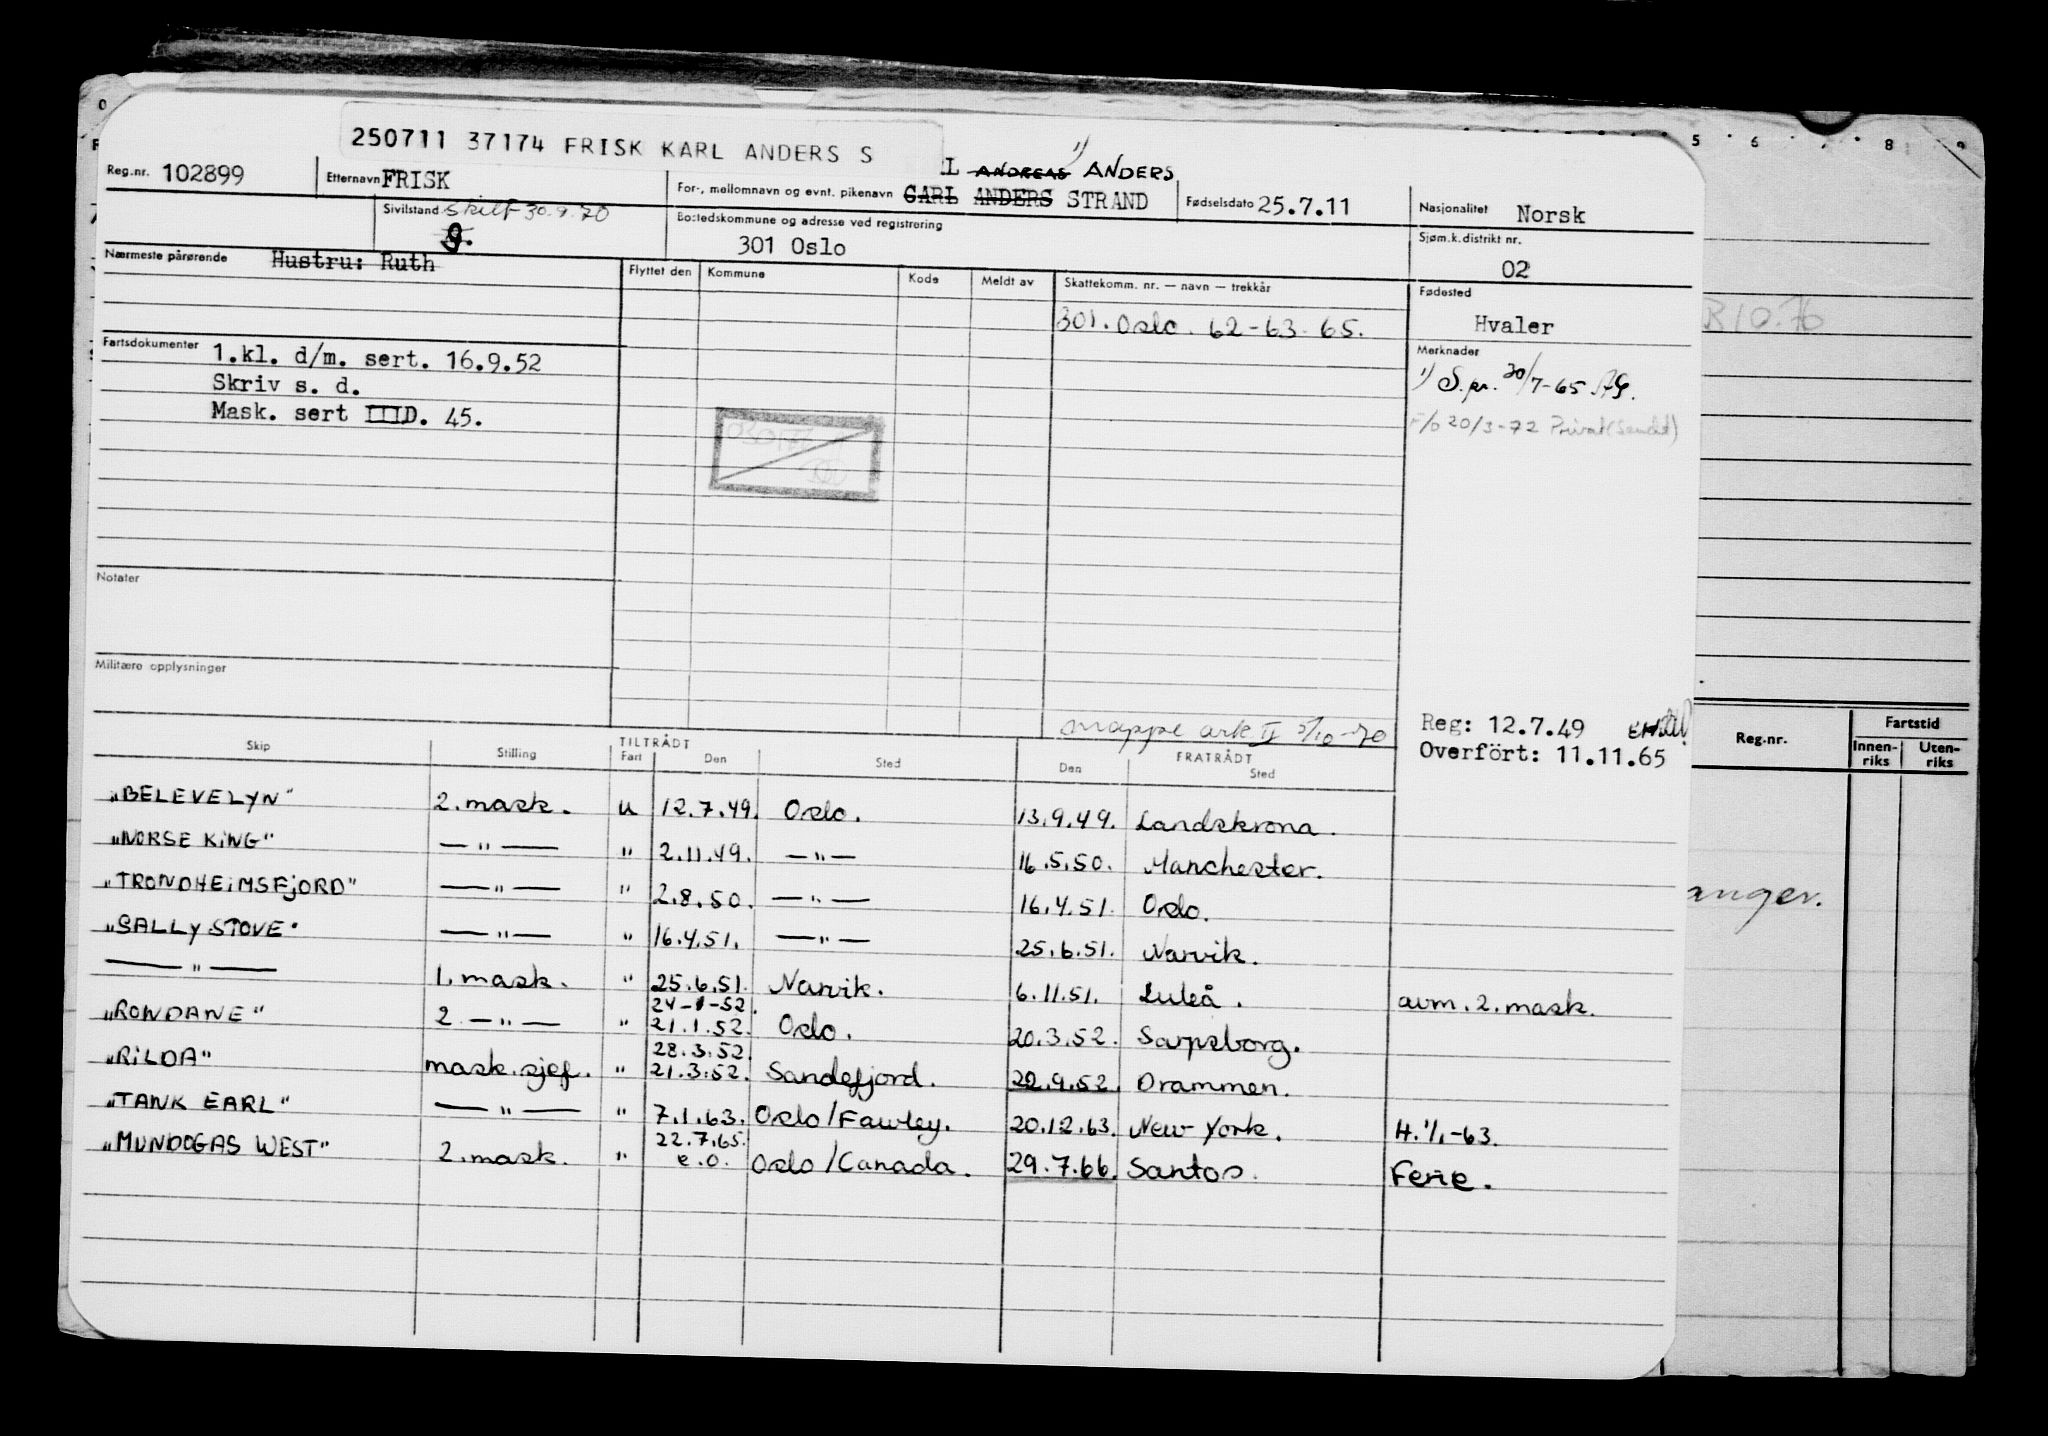 250711 37174 FRISK KARL ANDERS S
Reg.nr. 102899 Etternavn FRISK For-, mellomnavn og evnt. pikenavn L ANDREAS 1) ANDERS
CARL ANDERS STRAND Fødselsdato 25.7.11 Nasjonalitet Norsk
Sivilstand skilt 30.9.70
g.
Bostedskommune og adresse ved registrering
301 Oslo
Sjøm.k.distrikt nr.
02
Nærmeste pårørende Hustru: Ruth
Flyttet den Kommune Kode Meldt av Skattekomm. nr. — navn — trekkår
301. Oslo. 62-63-65.
Fødested
Hvaler
Fartsdokumenter 1.kl. d/m. sert. 16.9.52
Skriv s. d.
Mask. sert IIID. 45.
Merknader
1) S.pr. 20/7-65.
F/o 20/3-72 Privat (Sendt)
Notater
Militære opplysninger
mappe ark II 5/10-70
Reg: 12.7.49
Overført: 11.11.65
Skip Stilling TILTRÅDT Fart Den Sted FRATRÅDT Den Sted
"BELEVELYN" 2. mask. u 12.7.49. Oslo. 13.9.49. Landskrona.
"NORSE KING" — " — " 2.11.49. — " — 16.5.50. Manchester.
"TRONDHEIMSFJORD" — " — " 2.8.50. — " — 16.4.51. Oslo.
"SALLY STOVE" — " — " 16.4.51. — " — 25.6.51. Narvik.
— " — 1. mask. " 25.6.51. Narvik. 6.11.51. Luleå. avm. 2. mask.
24-1-52.
"RONDANE" 2. — " — " 21.1.52. Oslo. 20.3.52. Sarpsborg.
28.3.52.
"RILDA" mask.sjef. " 21.3.52. Sandefjord. 22.9.52. Drammen.
"TANK EARL" — " — " 7.1.63. Oslo/Fawley. 20.12.63. New York. H. 1/1-63.
22.7.65.
"MUNDOGAS WEST" 2. mask. " e.o. Oslo/Canada. 29.7.66. Santos. Ferie.
5 6 7 8 9
Reg.nr. Fartstid
Innen-
riks
Uten-
riks
anger.